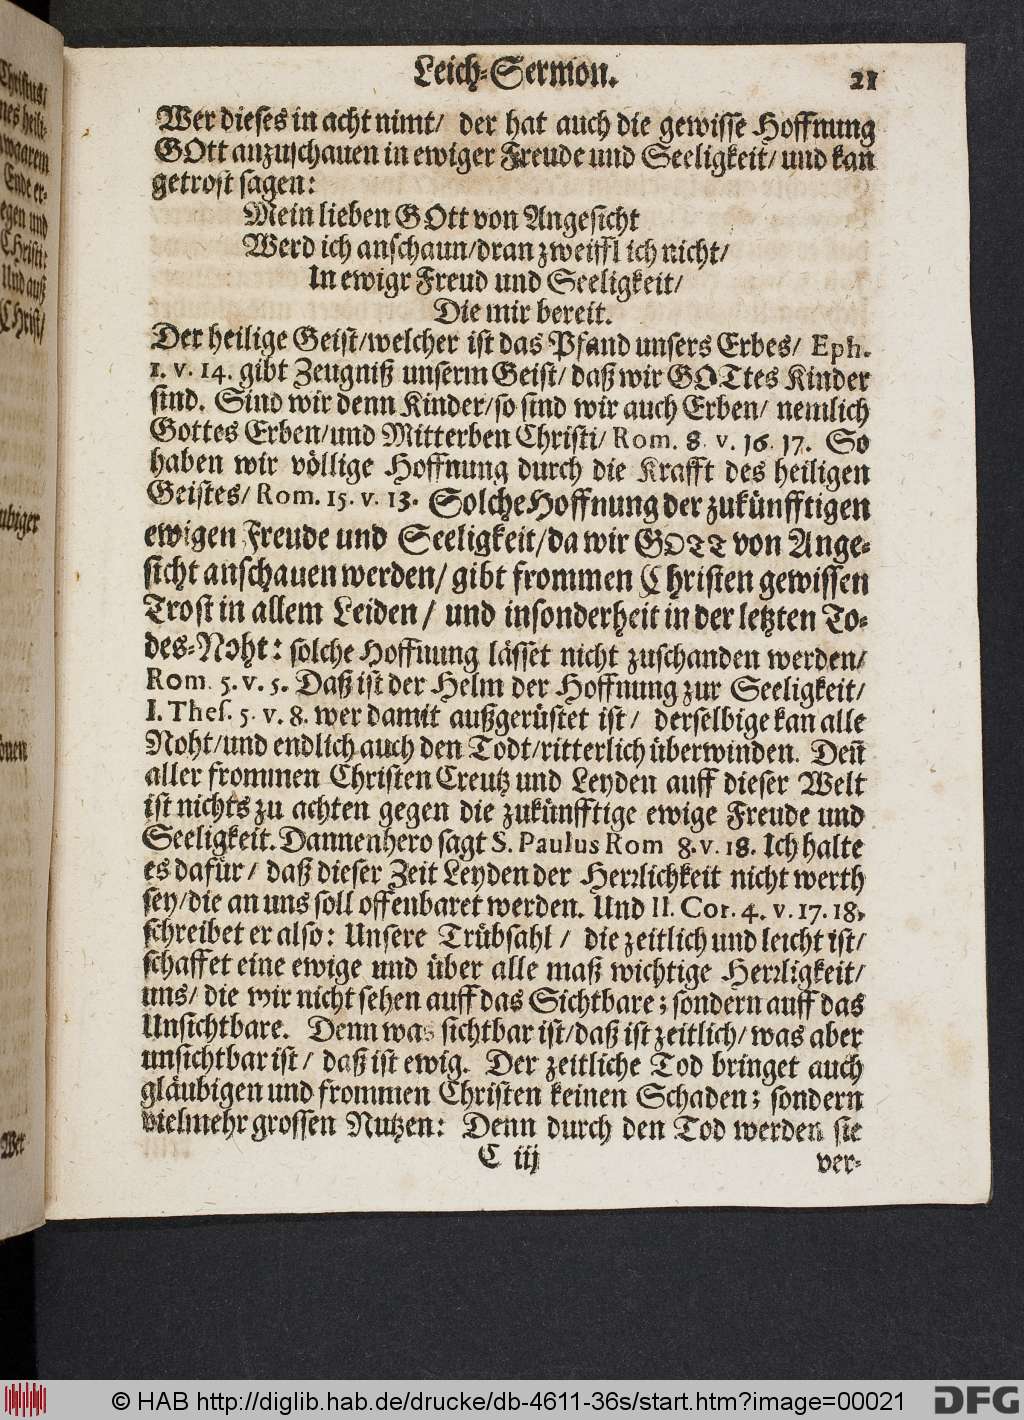 Leich-Sermon. 21
Wer dieses in acht nimt/ der hat auch die gewisse Hoffnung
GOtt anzuschauen in ewiger Freude und Seeligkeit/ und kan
getrost sagen:
Mein lieben GOtt von Angesicht
Werd ich anschaun/dran zweiffl ich nicht/
In ewigr Freud und Seeligkeit/
Die mir bereit.
Der heilige Geist/welcher ist das Pfand unsers Erbes/ Eph.
1. v. 14. gibt Zeugniß unserm Geist/ daß wir GOTtes Kinder
sind. Sind wir denn Kinder/so sind wir auch Erben/ nemlich
Gottes Erben/und Mitterben Christi/ Rom. 8. v. 16. 17. So
haben wir völlige Hoffnung durch die Krafft des heiligen
Geistes/ Rom. 15. v. 13. Solche Hoffnung der zukünfftigen
ewigen Freude und Seeligkeit/da wir GOTT von Ange-
sicht anschauen werden/ gibt frommen Christen gewissen
Trost in allem Leiden / und insonderheit in der letzten To-
des-Noht: solche Hoffnung lässet nicht zuschanden werden/
Rom. 5. v. 5. Daß ist der Helm der Hoffnung zur Seeligkeit/
I. Thes. 5. v. 8. wer damit außgerüstet ist / derselbige kan alle
Noht/und endlich auch den Todt/ritterlich überwinden. Deñ
aller frommen Christen Creutz und Leyden auff dieser Welt
ist nichts zu achten gegen die zukünfftige ewige Freude und
Seeligkeit. Dannenhero sagt S. Paulus Rom 8. v. 18. Ich halte
es dafür / daß dieser Zeit Leyden der Herrlichkeit nicht werth
sey/die an uns soll offenbaret werden. Und II. Cor. 4. v. 17. 18.
schreibet er also: Unsere Trübsahl / die zeitlich und leicht ist/
schaffet eine ewige und über alle maß wichtige Herrligkeit/
uns/ die wir nicht sehen auff das Sichtbare; sondern auff das
Unsichtbare. Denn was sichtbar ist/daß ist zeitlich/ was aber
unsichtbar ist / daß ist ewig. Der zeitliche Tod bringet auch
gläubigen und frommen Christen keinen Schaden; sondern
vielmehr grossen Nutzen: Denn durch den Tod werden sie
C iij ver-
© HAB http://diglib.hab.de/drucke/db-4611-36s/start.htm?image=00021 DFG